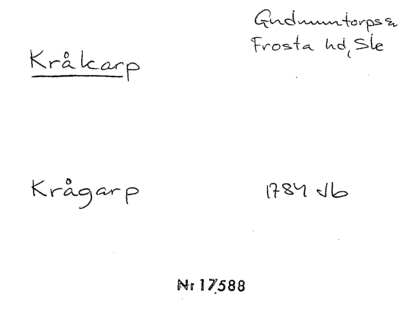 Gudmuntorps sn
Frosta hd, Ske
Kråkarp
Krågarp 1784 Jb
Nr 17588